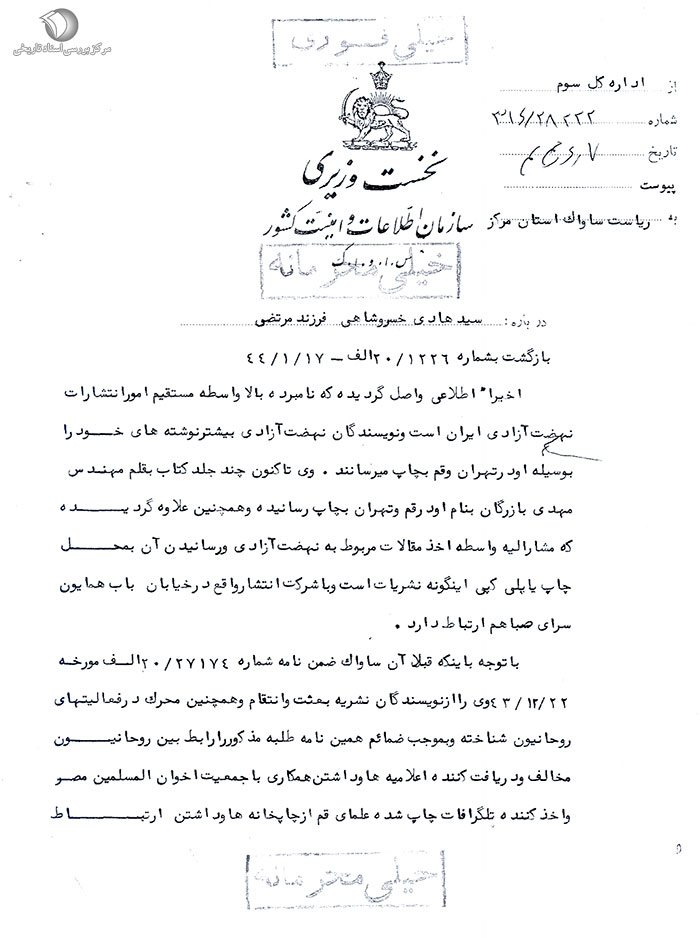 مرکز بررسی اسناد تاریخی
خیلی فوری
از اداره کل سوم
شماره ۳۱۶/۲۸۲۲۲
تاریخ
پیوست
نخست وزیری
سازمان اطلاعات و امنیت کشور
س.ا.و.ا.ک
به ریاست ساواك استان مرکز
خیلی محرمانه
درباره: سید هادی خسروشاهی فرزند مرتضی
بازگشت بشماره ۲۰/۱۲۲۶الف – ٤٤/۱/۱۷
اخیراً اطلاعی واصل گردیده که نامبرده بالا واسطه مستقیم امور انتشارات
نهضت آزادی ایران است و نویسندگان نهضت آزادی بیشتر نوشته های خود را
بوسیله او در تهران و قم بچاپ میرسانند . وی تاکنون چند جلد کتاب بقلم مهندس
مهدی بازرگان بنام او در قم و تهران بچاپ رسانیده و همچنین علاوه گردیده
که مشارالیه واسطه اخذ مقالات مربوط به نهضت آزادی و رسانیدن آن بمحل
چاپ یا پلی کپی اینگونه نشریات است و با شرکت انتشار واقع در خیابان باب همایون
سرای صبا هم ارتباط دارد .
با توجه باینکه قبلا آن ساواك ضمن نامه شماره ۲۰/۲۷۱۷٤الف مورخه
٤۳/۱۲/۲۲ وی را از نویسندگان نشریه بعثت و انتقام و همچنین محرك در فعالیتهای
روحانیون شناخته و بموجب ضمائم همین نامه طلبه مذکور را رابط بین روحانیون
مخالف و دریافت کننده اعلامیه ها و داشتن همکاری با جمعیت اخوان المسلمین مصر
و اخذ کننده تلگرافات چاپ شده علمای قم از چاپخانه ها و داشتن ارتباط
خیلی محرمانه